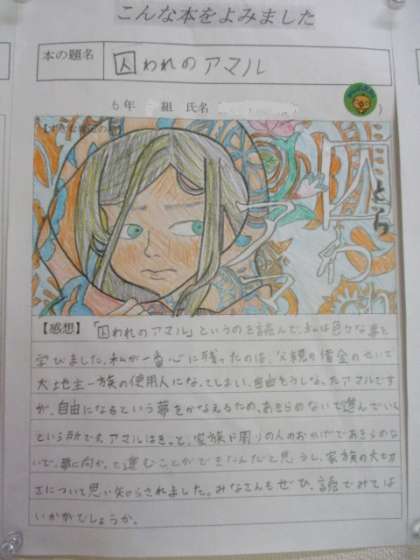 こんな本をよみました
本の題名
囚われのアマル
6年 組 氏名
囚われ
とら
アマル
【感想】「囚われのアマル」というのを読んで、私は色々な事を
学びました。私が一番心に残ったのは、父親の借金のせいで
大地主一族の使用人になってしまい、自由をうしなったアマルです
が、自由になるという夢をかなえるため、あきらめないで進んでいく
という所です。アマルはきっと、家族や周りの人のおかげであきらめな
いで、夢に向かって進むことができたんだと思うし、家族の大切
さについて思い知らされました。みなさんもぜひ、読んでみては
いかがでしょうか。